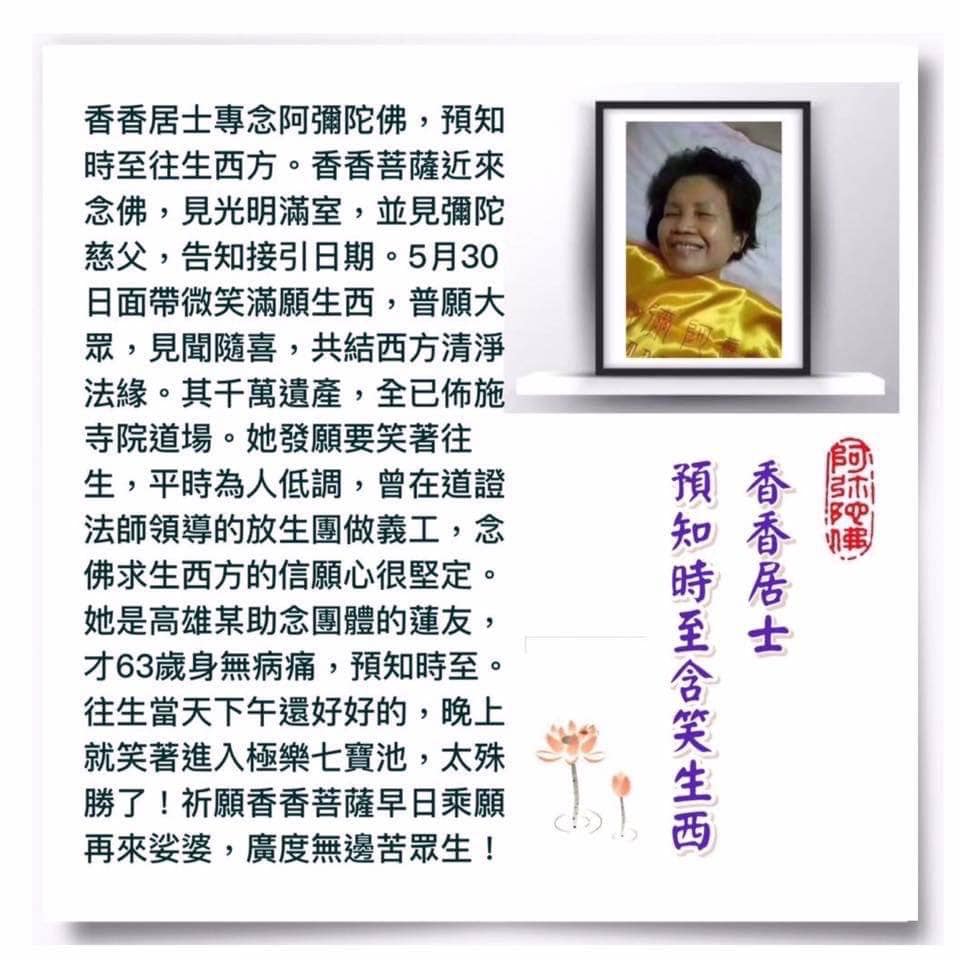 香香居士專念阿彌陀佛，預知
時至往生西方。香香菩薩近來
念佛，見光明滿室，並見彌陀
慈父，告知接引日期。5月30
日面帶微笑滿願生西，普願大
眾，見聞隨喜，共結西方清淨
法緣。其千萬遺產，全已佈施
寺院道場。她發願要笑著往
生，平時為人低調，曾在道證
法師領導的放生團做義工，念
佛求生西方的信願心很堅定。
她是高雄某助念團體的蓮友，
才63歲身無病痛，預知時至。
往生當天下午還好好的，晚上
就笑著進入極樂七寶池，太殊
勝了！祈願香香菩薩早日乘願
再來娑婆，廣度無邊苦眾生！
阿彌陀佛
香香居士
預知時至含笑生西